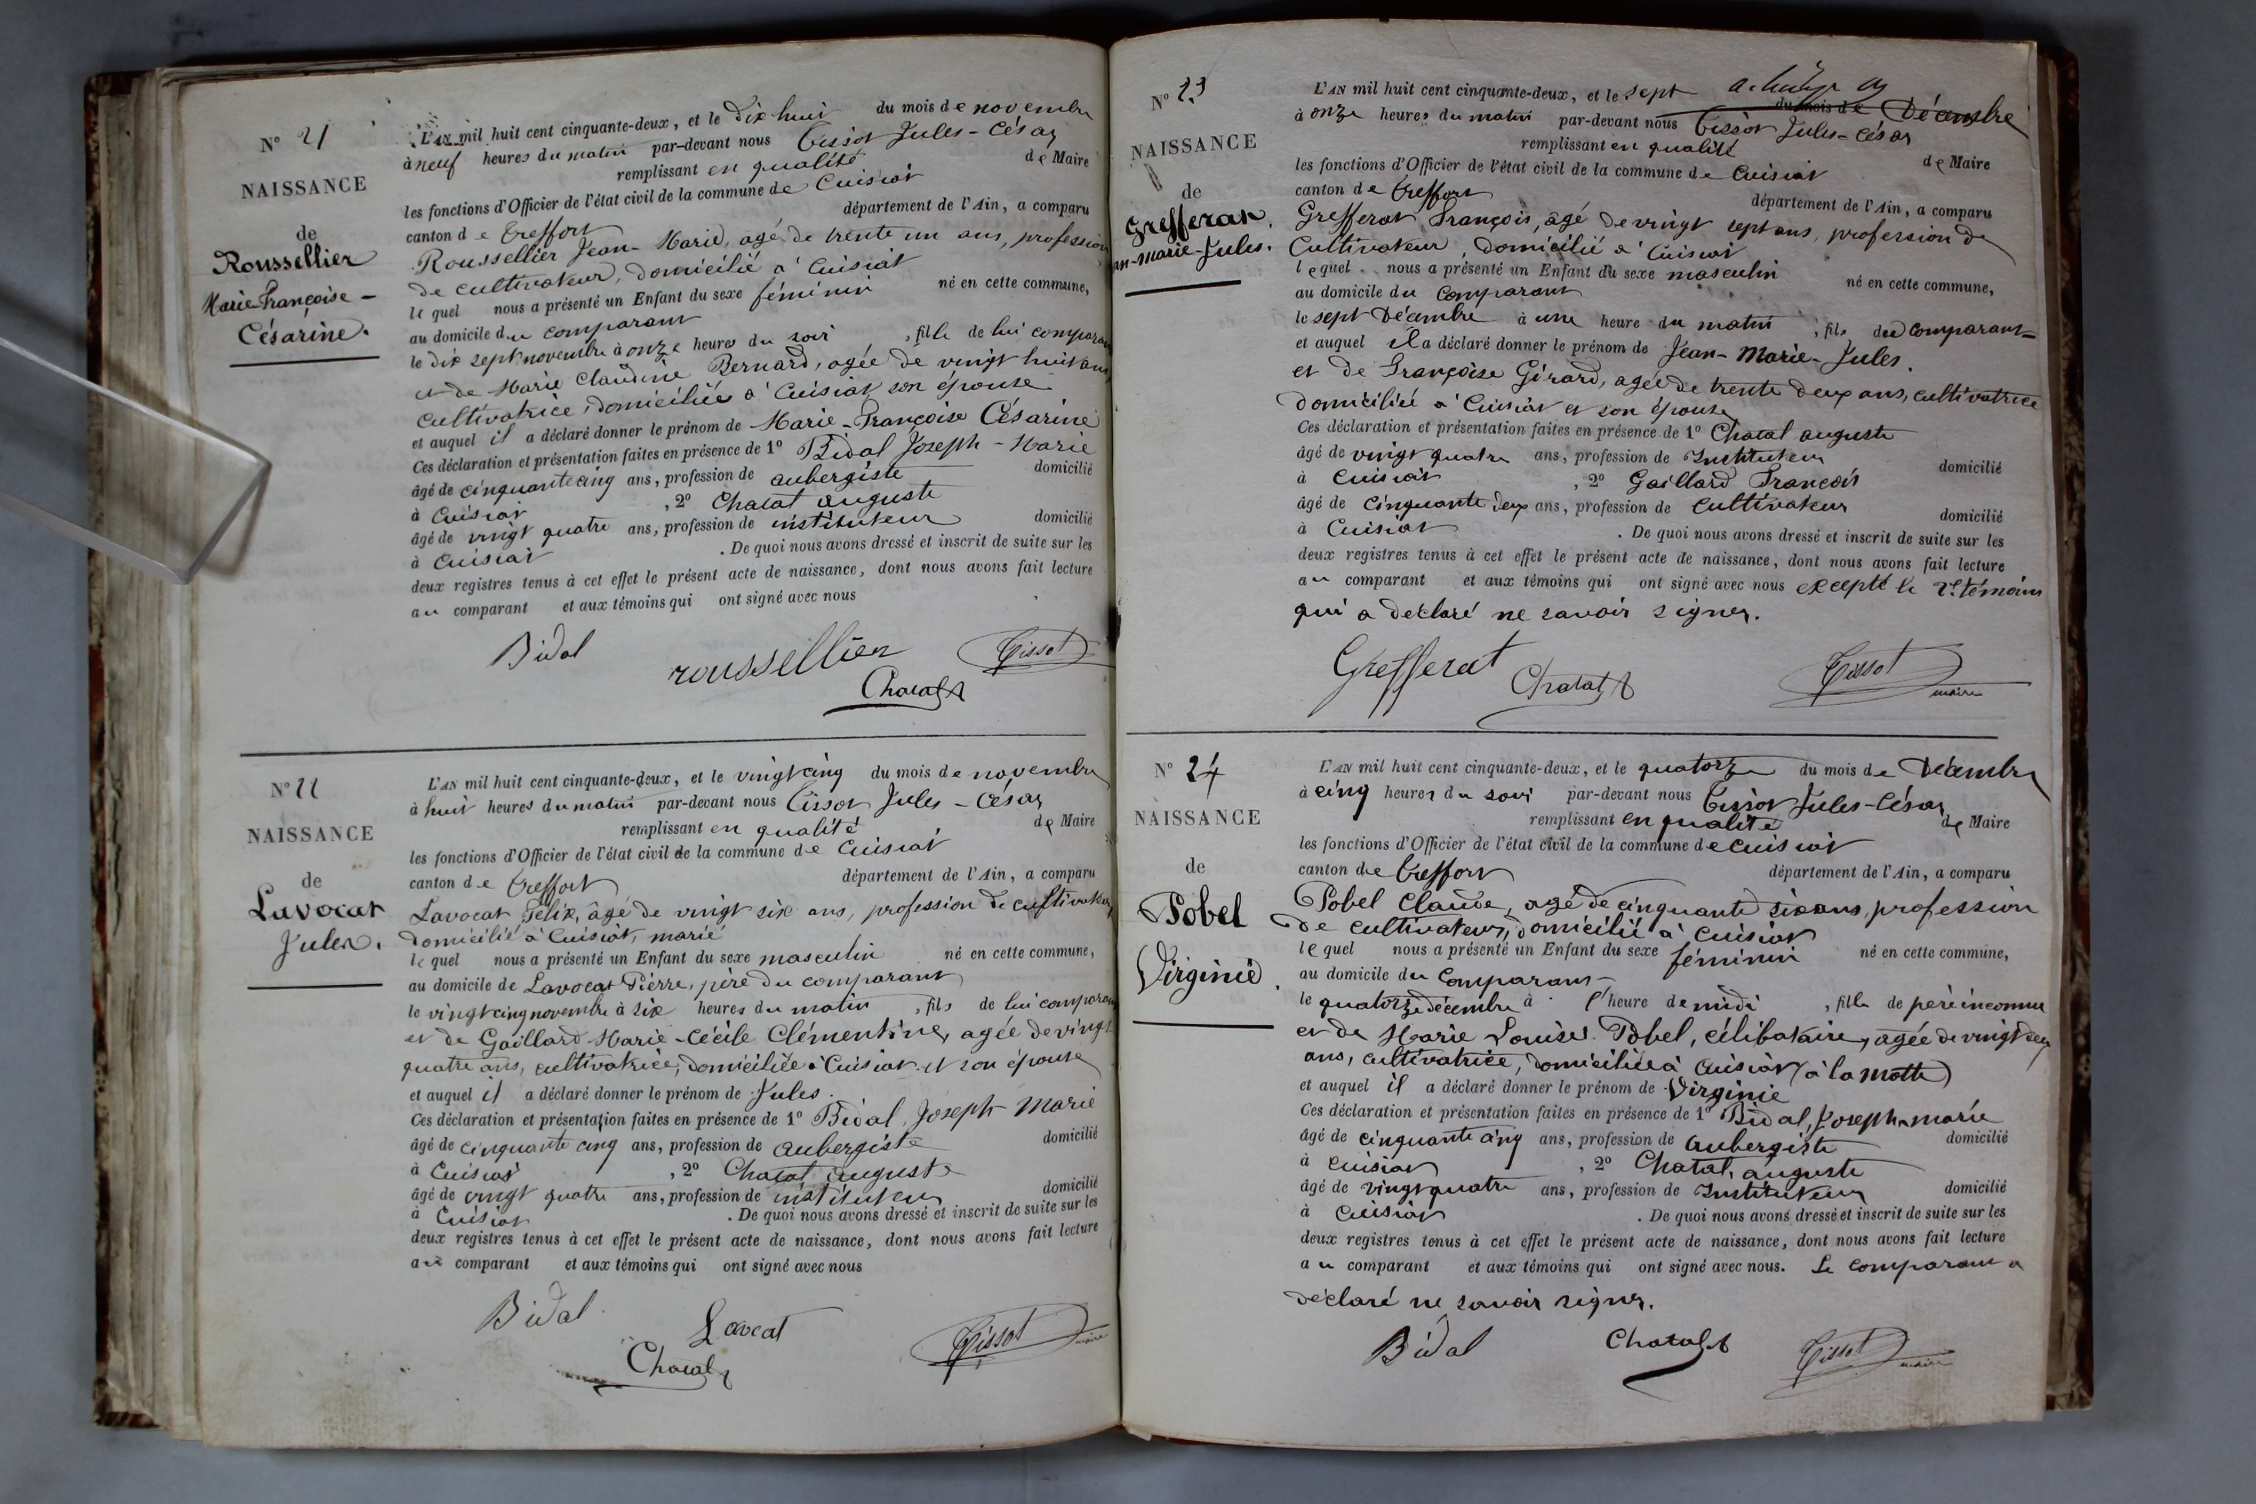 N° 21
NAISSANCE
de
Roussellier
Marie Françoise -
Césarine.
L'AN mil huit cent cinquante-deux, et le dix huit du mois de novembre
à neuf heures du matin par-devant nous Tissot Jules-César
remplissant en qualité de Maire
les fonctions d'Officier de l'état civil de la commune de Cuisiat
canton de Treffort département de l'Ain, a comparu
Roussellier Jean-Marie, agé de trente un ans, profession
de cultivateur, domicilié à Cuisiat
lequel nous a présenté un Enfant du sexe féminin né en cette commune,
au domicile du comparant
le dix sept novembre à onze heures du soir, fille de lui comparant
et de Marie Claudine Bernard, agée de vingt huit ans
cultivatrice, domiciliée à Cuisiat son épouse
et auquel il a déclaré donner le prénom de Marie-Françoise Césarine
Ces déclaration et présentation faites en présence de 1° Bidal Joseph-Marie
âgé de cinquante cinq ans, profession de aubergiste domicilié
à Cuisiat, 2° Chatat auguste
âgé de vingt quatre ans, profession de instituteur domicilié
à Cuisiat. De quoi nous avons dressé et inscrit de suite sur les
deux registres tenus à cet effet le présent acte de naissance, dont nous avons fait lecture
au comparant et aux témoins qui ont signé avec nous
Bidal roussellier Tissot
Chatat
N° 22
NAISSANCE
de
Lavocat
Jules.
L'AN mil huit cent cinquante-deux, et le vingt cinq du mois de novembre
à huit heures du matin par-devant nous Tissot Jules-César
remplissant en qualité de Maire
les fonctions d'Officier de l'état civil de la commune de Cuisiat
canton de Treffort département de l'Ain, a comparu
Lavocat Félix, âgé de vingt six ans, profession de cultivateur
domicilié à Cuisiat, marié
lequel nous a présenté un Enfant du sexe masculin né en cette commune,
au domicile de Lavocat Pierre, père du comparant
le vingt cinq novembre à six heures du matin, fils de lui comparant
et de Gaillard Marie-Cécile Clémentine, agée de vingt
quatre ans, cultivatrice, domiciliée à Cuisiat et son épouse
et auquel il a déclaré donner le prénom de Jules.
Ces déclaration et présentation faites en présence de 1° Bidal, Joseph Marie
âgé de cinquante cinq ans, profession de aubergiste domicilié
à Cuisiat, 2° Chatat auguste
âgé de vingt quatre ans, profession de instituteur domicilié
à Cuisiat. De quoi nous avons dressé et inscrit de suite sur les
deux registres tenus à cet effet le présent acte de naissance, dont nous avons fait lecture
au comparant et aux témoins qui ont signé avec nous
Bidal Lavocat Tissot maire
Chatat
N° 23
NAISSANCE
de
Grefferat
an-Marie-Jules.
L'AN mil huit cent cinquante-deux, et le sept du mois de Décembre
à onze heures du matin par-devant nous Tissot Jules-César
remplissant en qualité de Maire
les fonctions d'Officier de l'état civil de la commune de Cuisiat
canton de Treffort département de l'Ain, a comparu
Grefferat François, âgé de vingt sept ans, profession de
Cultivateur, domicilié à Cuisiat
lequel nous a présenté un Enfant du sexe masculin né en cette commune,
au domicile du comparant
le sept Décembre à une heure du matin, fils du comparant
et auquel il a déclaré donner le prénom de Jean-Marie-Jules.
et de Françoise Girard, agée de trente deux ans, cultivatrice
domiciliée à Cuisiat et son épouse
Ces déclaration et présentation faites en présence de 1° Chatat auguste
âgé de vingt quatre ans, profession de Instituteur domicilié
à Cuisiat, 2° Gaillard François
âgé de cinquante deux ans, profession de Cultivateur domicilié
à Cuisiat. De quoi nous avons dressé et inscrit de suite sur les
deux registres tenus à cet effet le présent acte de naissance, dont nous avons fait lecture
au comparant et aux témoins qui ont signé avec nous excepté le 2e témoin
qui a déclaré ne savoir signer.
Grefferat Chatat Tissot maire
N° 24
NAISSANCE
de
Pobel
Virginie.
L'AN mil huit cent cinquante-deux, et le quatorze du mois de Décembre
à cinq heures du soir par-devant nous Tissot Jules-César
remplissant en qualité de Maire
les fonctions d'Officier de l'état civil de la commune de cuisiat
canton de Treffort département de l'Ain, a comparu
Pobel Claude, agé de cinquante six ans, profession
de cultivateur, domicilié à Cuisiat
lequel nous a présenté un Enfant du sexe féminin né en cette commune,
au domicile du comparant
le quatorze décembre à l'heure de midi, fille de père inconnu
et de Marie Louise Pobel, célibataire, agée de vingt deux
ans, cultivatrice, domiciliée à Cuisiat (à la motte)
et auquel il a déclaré donner le prénom de Virginie
Ces déclaration et présentation faites en présence de 1° Bidal, Joseph-marie
âgé de cinquante cinq ans, profession de aubergiste domicilié
à Cuisiat, 2° Chatat, auguste
âgé de vingt quatre ans, profession de Instituteur domicilié
à Cuisiat. De quoi nous avons dressé et inscrit de suite sur les
deux registres tenus à cet effet le présent acte de naissance, dont nous avons fait lecture
au comparant et aux témoins qui ont signé avec nous. Le comparant a
déclaré ne savoir signer.
Bidal Chatat Tissot maire